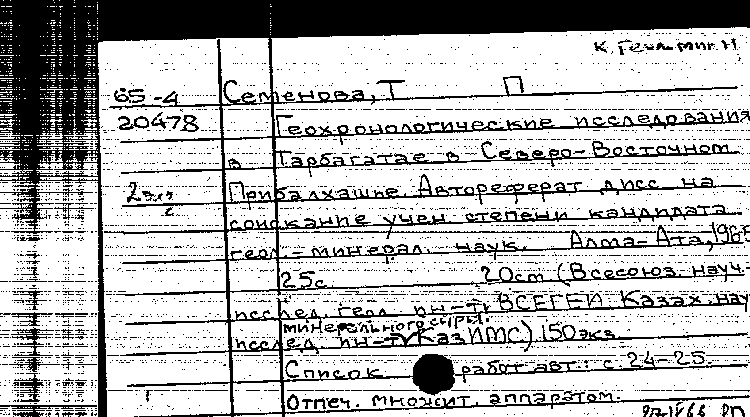 К. Геол. мин. Н
65-4 Семенова, Т П
20478 Геохронологические исследования
в Тарбагатае в Северо-Восточном
2экз Прибалхашье Автореферат дисс на
соискание учен степени кандидата
геол.-минерал. наук. Алма-Ата, 1965
25с 20см (Всесоюз. науч.-
исслед. геол ин-т ВСЕГЕИ Казах. науч
минерального сырья.
исслед. ин-т КазИМС) 150экз.
Список работ авт.: с. 24-25.
Отпеч. множит. аппаратом.